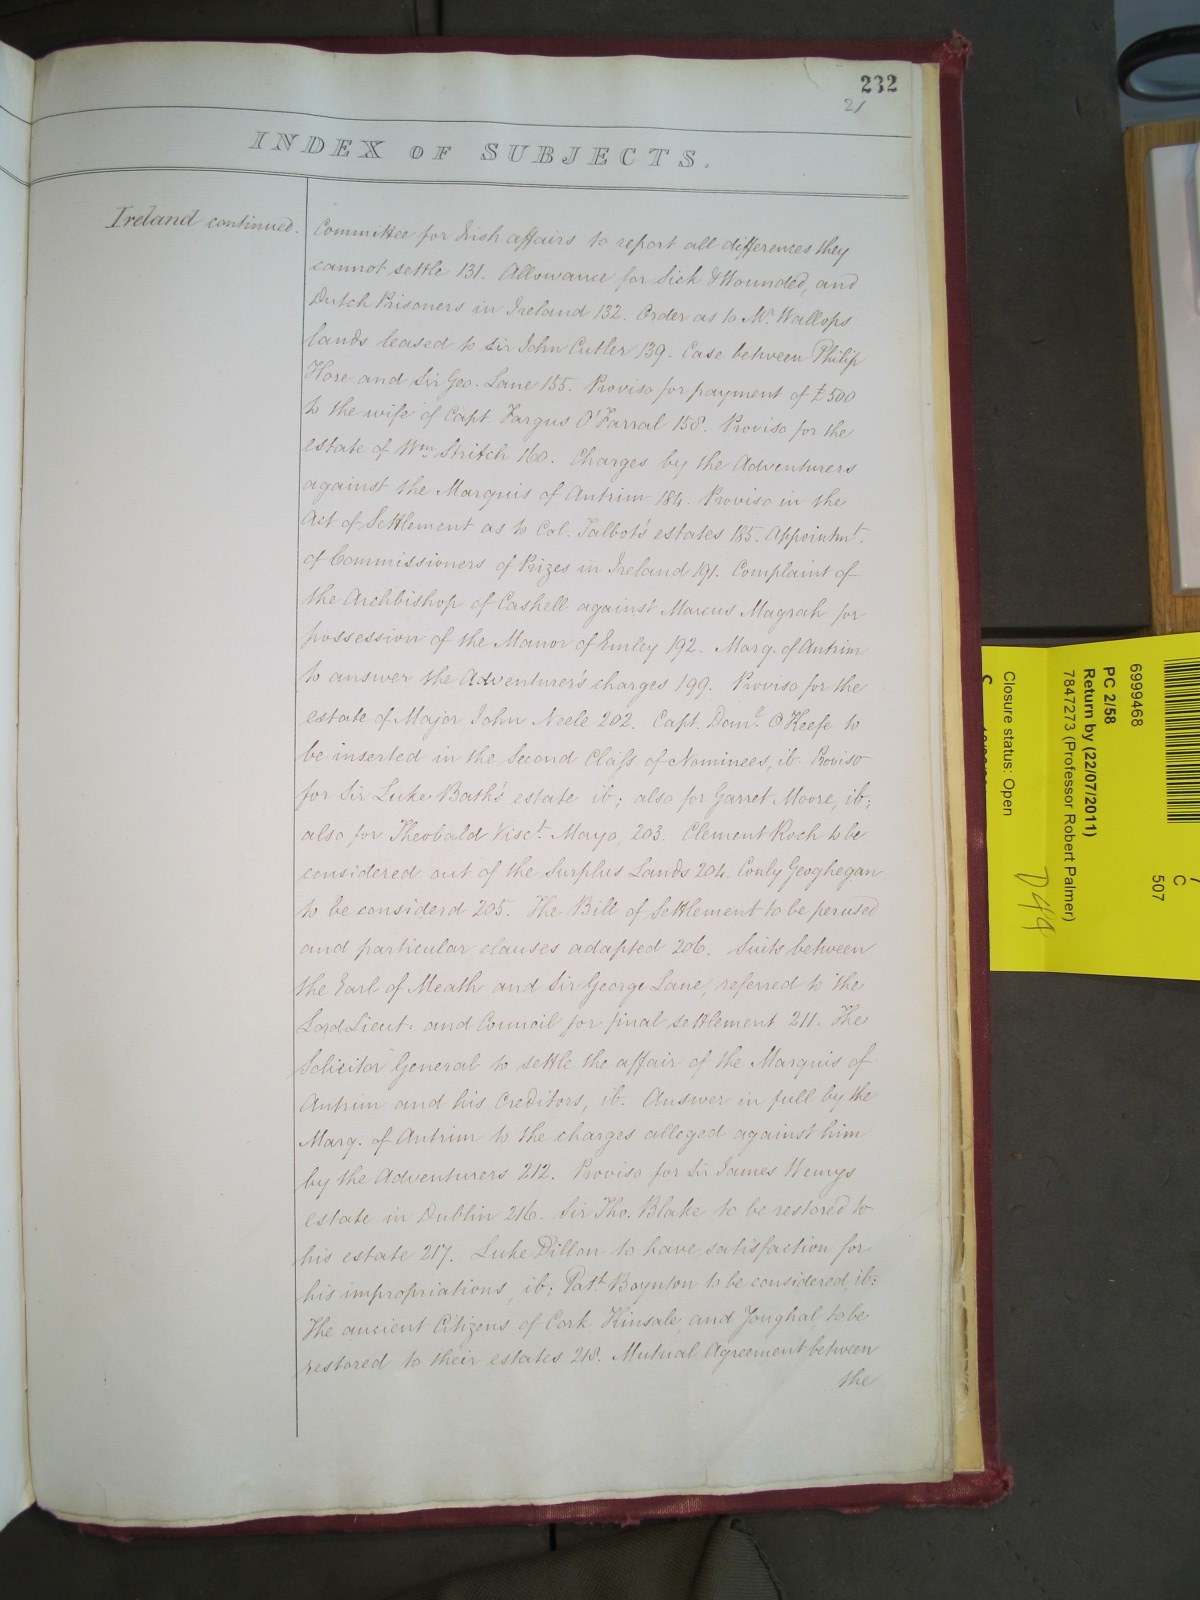 232
21
INDEX OF SUBJECTS.
Ireland continued.
Committee for Irish affairs to report all differences they
cannot settle 131. Allowance for Sick & Wounded, and
Dutch Prisoners in Ireland 132. Order as to Mr. Wallops
lands leased to Sir John Cutler 139. Case between Philip
Hore and Sir Geo. Lane 155. Proviso for payment of £500
to the wife of Capt. Fargus O'Farral 158. Proviso for the
estate of Wm. Stritch 160. Charges by the Adventurers
against the Marquis of Antrim 184. Proviso in the
Act of Settlement as to Col. Talbot's estates 185. Appointmt.
of Commissioners of Prizes in Ireland 191. Complaint of
the Archbishop of Cashell against Marcus Magrah for
possession of the Manor of Emley 192. Marq. of Antrim
to answer the Adventurer's charges 199. Proviso for the
estate of Major John Neele 202. Capt. Danl. O'Keefe to
be inserted in the Second Class of Nominees, ib. Proviso
for Sir Luke Bath's estate ib; also for Garret Moore, ib;
also for Theobald Visct. Mayo, 203. Clement Roch to be
considered out of the Surplus Lands 204. Conly Geoghegan
to be considerd 205. The Bill of Settlement to be perused
and particular clauses adapted 206. Suits between
the Earl of Meath and Sir George Lane, referred to the
Lord Lieut: and Council for final settlement 211. The
Solicitor General to settle the affair of the Marquis of
Antrim and his Creditors, ib. Answer in full by the
Marq. of Antrim to the charges alleged against him
by the Adventurers 212. Proviso for Sir James Wemys
estate in Dublin 216. Sir Tho. Blake to be restored to
his estate 217. Luke Dillon to have satisfaction for
his impropriations, ib; Patt. Boynton to be considered, ib:
The ancient Citizens of Cork, Kinsale, and Youghal, to be
restored to their estates 218. Mutual Agreement between
the
6999468
PC 2/58
Return by (22/07/2011)
7847273 (Professor Robert Palmer)
Closure status: Open
D49
C
507